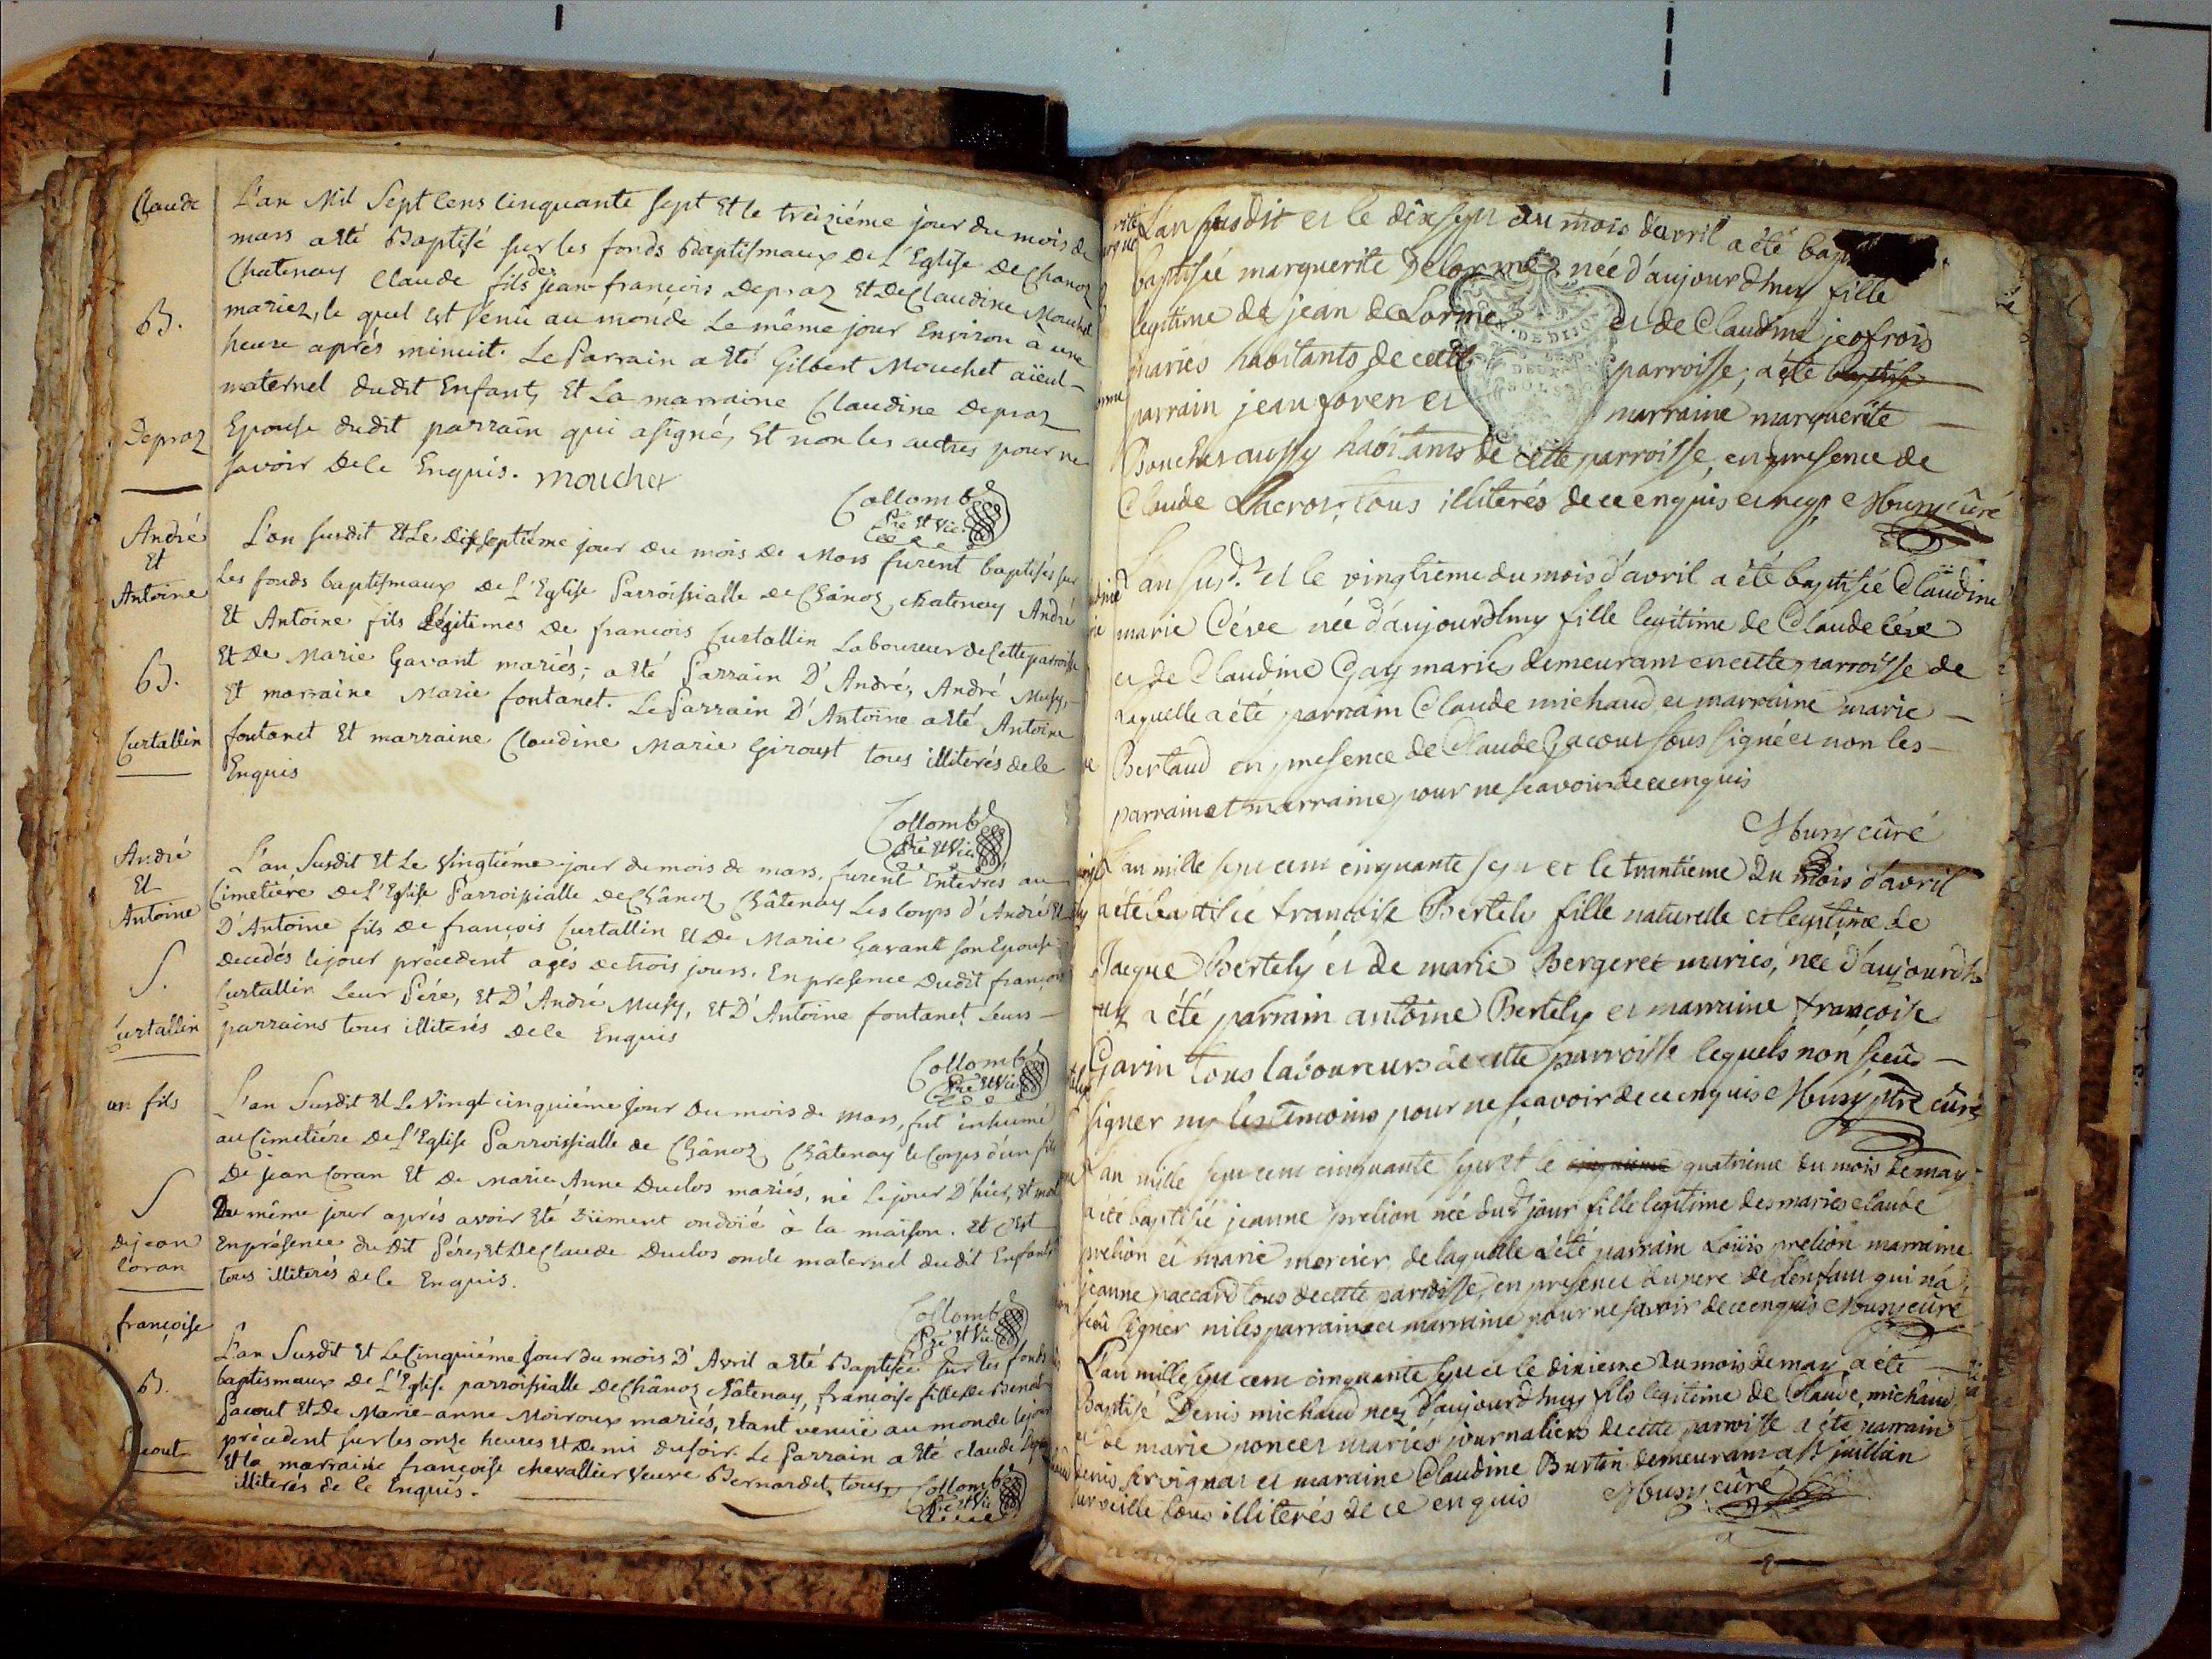 Claude
B.
Depraz
L'an Mil Sept Cens Cinquante Sept Et le treiziéme jour du mois de
mars a Eté Baptisé sur les fonds Baptismaux De L'Eglise De Chanoz
Chatenay Claude fils de jean-francois Depraz Et De Claudine Mouchet
mariez, le quel Est Venû au monde Le même jour Environ a une
heure aprés minuit. Le Parrain a Eté Gilbert Mouchet aïeul-
maternel dudit Enfant, Et La marraine Claudine Depraz
Epouse dudit parrain qui a signé, Et non les autres pour ne
savoir De ce Enquis. mouchet
Collomb
Pre et Vic.
André
Et
Antoine
B.
Curtallin
L'an susdit Et Le dixseptiéme jour du mois de Mars furent baptisés sur
Les fonds baptismaux De L'Eglise Parroissialle de Chânoz chatenay André
Et Antoine fils Légitimes De francois Curtallin Laboureur de Cette parroisse
Et De Marie Gavant mariés; a Eté Parrain D'André, André Musy,
Et marraine Marie fontanet. Le Parrain D'Antoine a Eté Antoine
fontanet Et marraine Claudine Marie Giroust tous illiterés de ce
Enquis
Collomb
Pre et Vic
André
Et
Antoine
S.
Curtallin
L'an Susdit Et Le Vingtiéme jour du mois de mars, furent Enterrés au
Cimetiére De L'Eglise Parroissialle de Chânoz Châtenay Les Corps d'André Et
D'Antoine fils De françois Curtallin Et De Marie Gavant son Epouse
decedés le jour précedent agés de trois jours. En presence Dudit françois
Curtallin Leur Pére, Et D'André Musy, Et D'Antoine fontanet Leurs -
parrains tous illiterés De ce Enquis
Collomb
Pre et Vic
un fils
S
De jean
Coran
L'an Susdit Et Le Vingt cinquiéme Jour Du mois de mars, fut inhumé
au Cimetiére De L'Eglise Parroissialle de Chânoz Châtenay le Corps d'un fils
De jean Coran Et De Marie Anne Duclos mariés, né le jour D'hier, Et mort
Du même jour aprés avoir Eté Dûement ondoïé à la maison. Et C'est
En présence du dit Pére, Et De Claude Duclos oncle maternel dudit Enfant
tous illiterés de ce Enquis.
Collomb
Pre et Vic
françoise
B.
L'an Susdit Et Le Cinquiéme Jour du mois D'Avril a Eté Baptisée sur les fonds
baptismaux De L'Eglise parroissialle De Chânoz chatenay, francoise fille De Benoit
Pacout Et De Marie-anne Moiroux mariés, Etant venuë au monde le jour
précedent sur les onze heures Et Demi du soir. Le Parrain a Eté claude
Et la marraine françoise chevallier Veuve Bernardet, tous
illiterés de ce Enquis.
Collomb
Pre et Vic
L'an susdit et le dixsept du mois d'avril a été
baptisée marguerite Delorme née d'aujourdhuy fille
legitime de jean deLorme et de Claudine jeofrois
maries habitants de cette parroisse; a été baptisé
parrain jean goren et marraine marguerite
Bouchet aussy habitants de cette parroisse, en presence de
Claude Lacroix, tous illiterés de ce enquis et Musy cûré
L'an susd.t et le vingtieme du mois d'avril a été baptisée Claudine
marie Céve née d'aujourdhuy fille legitime de Claude Céve
et de Claudine Gay maries demeurant en cette parroisse de
Laquelle a été parrain Claude michaud et marraine marie -
Bertaud en presence de Claude Gacout sous signé et non les -
parrain et marraine pour ne scavoir de ce enquis
Musy cûré
L'an mille sept cent cinquante sept et le trantieme du mois d'avril
a été batisée francoise Bertely fille naturelle et legitime de
Jacque Bertely et de marie Bergeret mariés, née d'aujourdh
uy a été parrain antoine Bertely et marraine françoise
Garin tous laboureurs de cette parroisse lequels non sceû -
signer ny les temoins pour ne scavoir de ce enquis Musy ptre cûré
L'an mille sept cent cinquante sept et le cinquieme quatrieme du mois de may
a été baptisée jeanne prelion née dud jour fille legitime des maries claude
prelion et marie mercier de laquelle a été parrain Loüis prelion marraine
jeanne paccard tous de cette paroisse, en presence du pere de L'enfant qui n'a
sceû signer ni les parrain et marraine pour ne savoir de ce enquis Musy cûré
L'an mille sept cent cinquante sept et le dixieme du mois de may a été
Baptisé Denis michaud nez d'aujourdhuy fils legitime de Claude michaud
et de marie poncet mariés journaliers de cette parroisse a été parrain
denis servignat et maraine Claudine Burtin demeurant a st jullien
sur veille tous illiterés de ce enquis Musy cûré